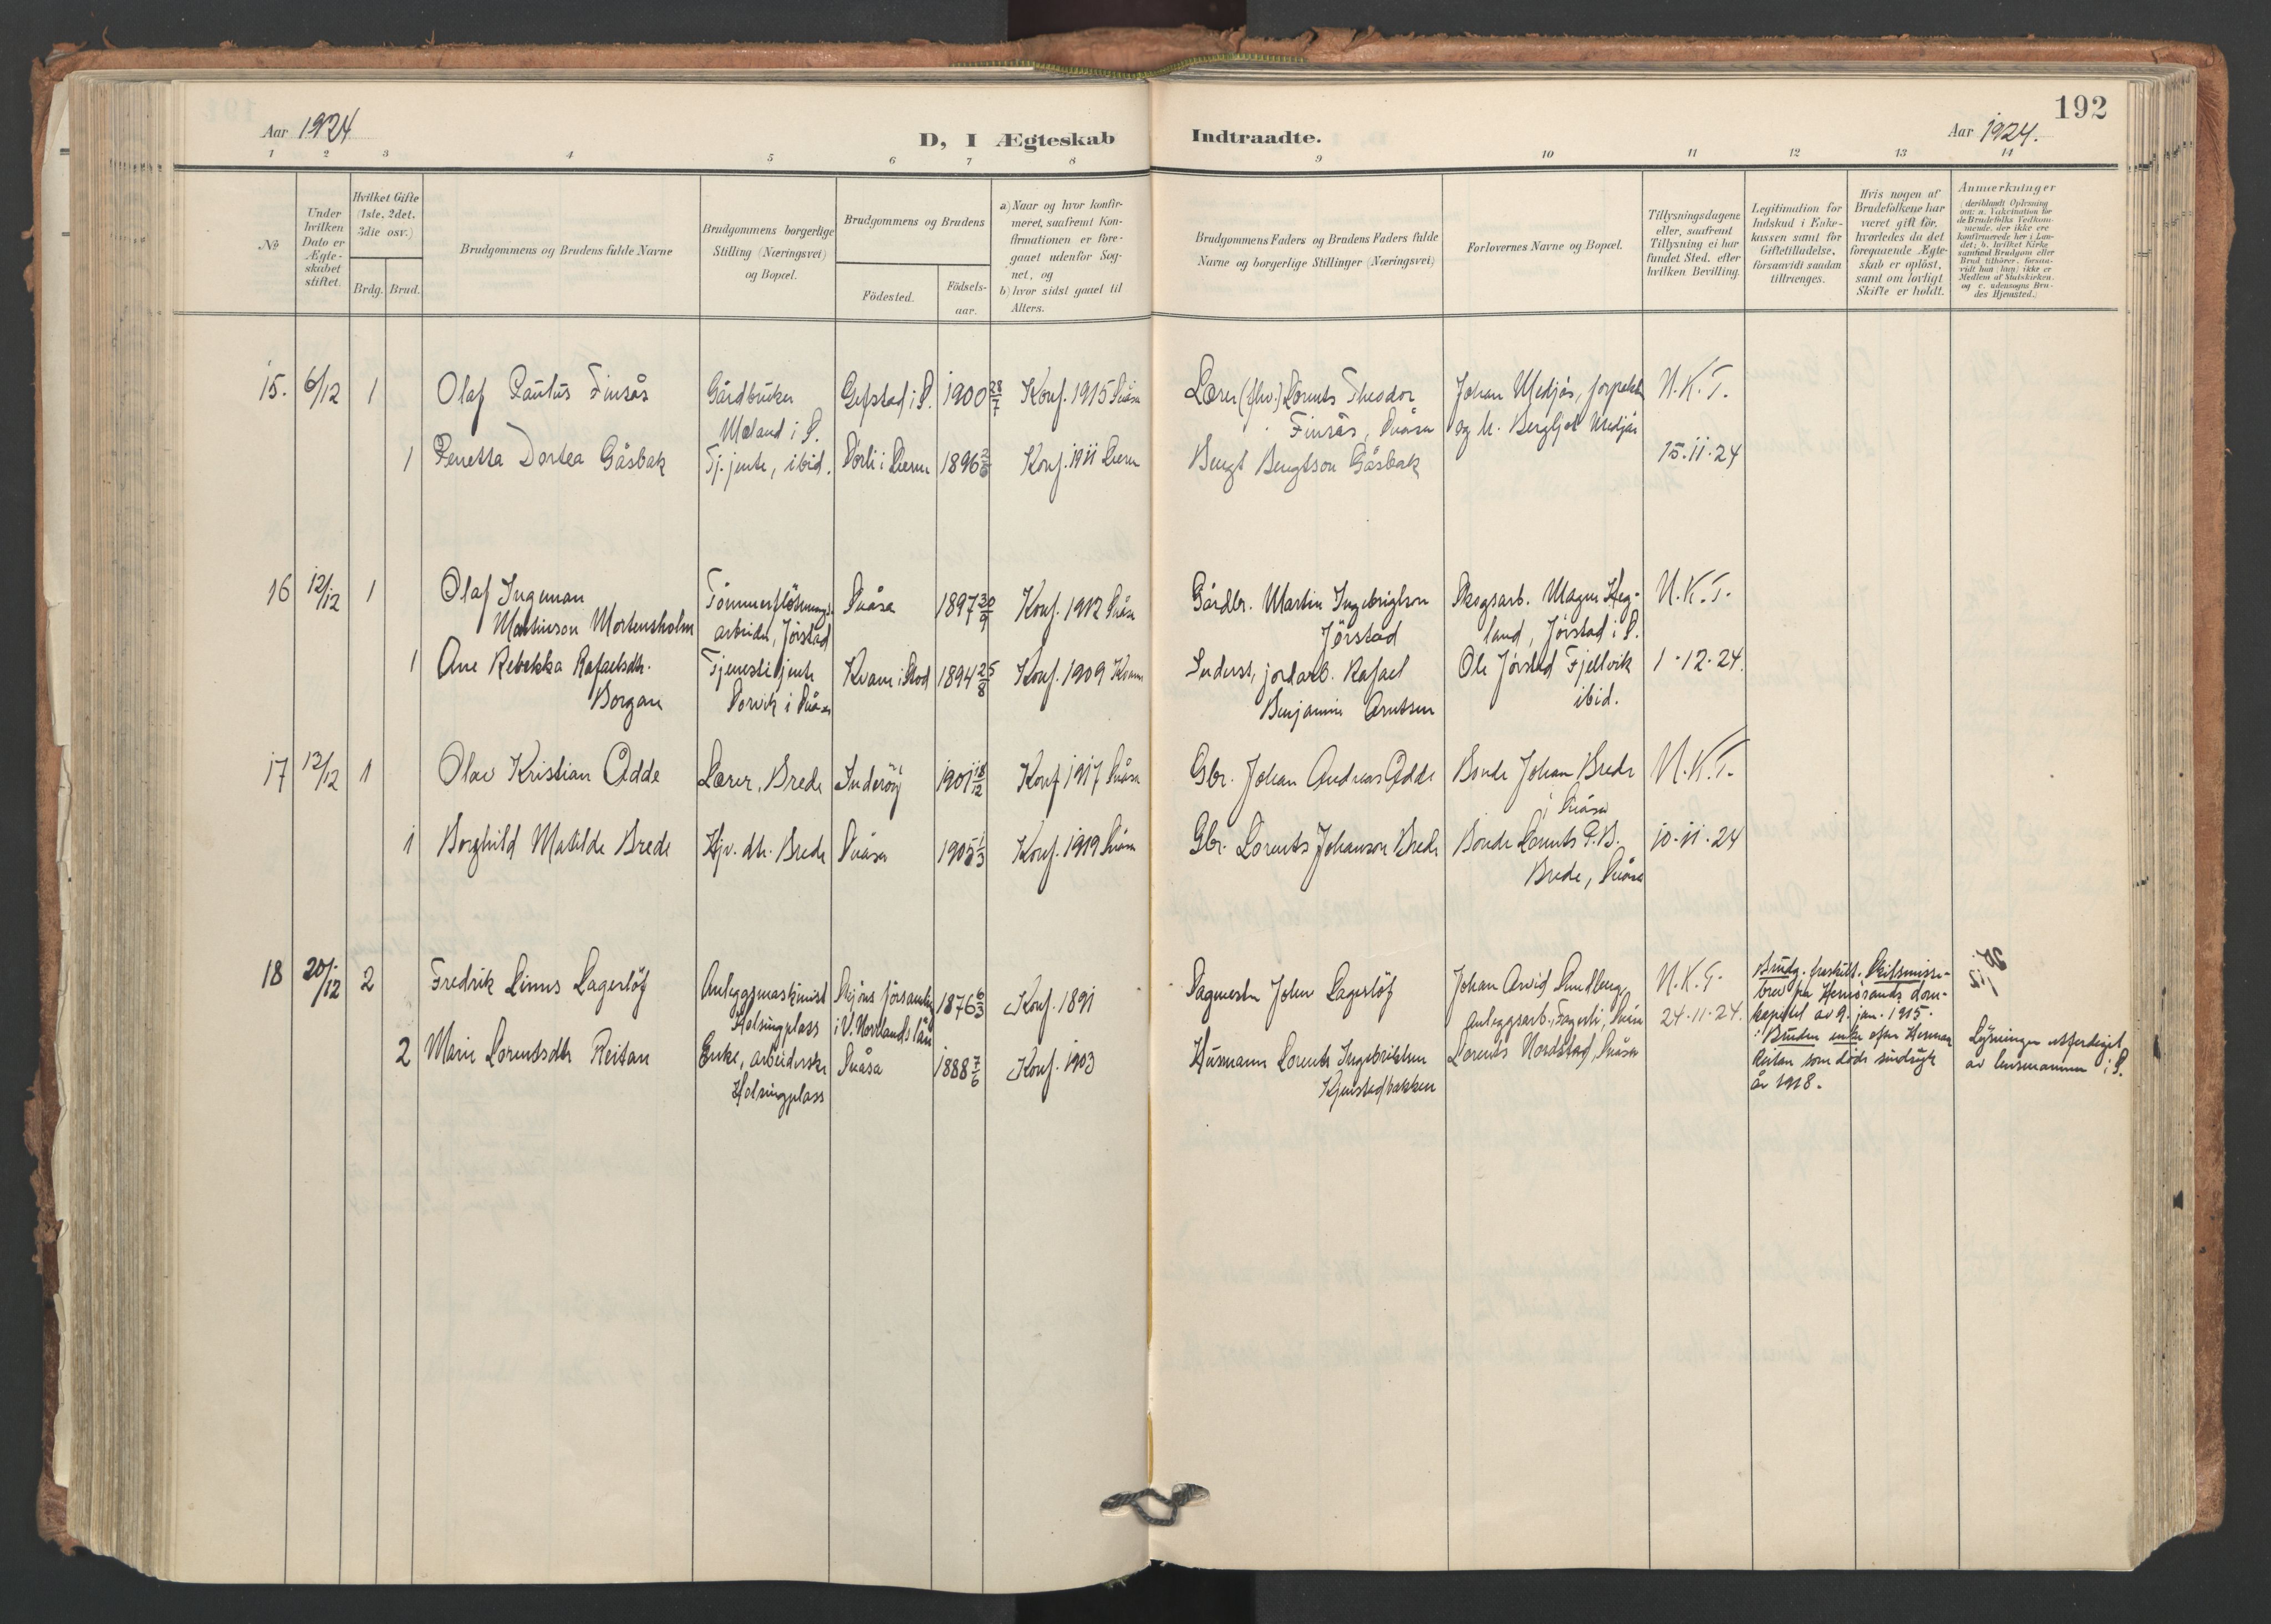 192
Aar 1924
D, I Ægteskab
Indtraadte.
Aar 1924.
1 2 3 4 5 6 7 8 9 10 11 12 13 14
No
Under hvilken Dato er Ægteskabet stiftet.
Hvilket Gifte (1ste, 2det, 3die osv.)
Brdg. Brud.
Brudgommens og Brudens fulde Navne
Brudgommens borgerlige Stilling (Næringsvei) og Bopæl.
Brudgommens og Brudens
Födested.
Födsels-aar.
a) Naar og hvor konfir-
meret, saafremt Kon-
firmationen er fore-
gaaet udenfor Sog-
net, og
b) hvor sidst gaaet til
Alters.
Brudgommens Faders og Brudens Faders fulde
Navne og borgerlige Stillinger (Næringsvei)
Forlovernes Navne og Bopæl.
Tillysningsdagene
eller, saafremt
Tillysning ei har
fundet Sted, efter
hvilken Bevilling.
Legitimation for
Indskud i Enke-
kassen samt for
Giftetilladelse,
forsaavidt saadan
tiltrænges.
Hvis nogen af
Brudefolkene har
været gift för,
hvorledes da det
foregaaende Ægte-
skab er oplöst,
samt om lovligt
Skifte er holdt.
Anmærkninger
(deriblandt Oplysning
om: a. Vakcination for
de Brudefolks Vedkom-
mende, der ikke ere
konfirmerede her i Lan-
det; b. hvilket Kirke
samfund Brudgom eller
Brud tilhører, forsaa-
vidt han (hun) ikke er
Medlem af Statskirken.
og c. udensogns Bru-
des Hjemsted.)
15. 6/12 1 Olaf Paulus Finsås Gårdbruker Gifstad i S. 1900 28/7 Konf. 1915 Snåsa Lærer (fhv.) Lorents Theodor Johan Medjås, N.K.T.
Moland i S. Finsås, Snåsa og h. Bergljot Medjås
1 Penetta Dortea Gåsbak Tj.jente, ibid. Sörli i Lierne 1896 Konf. 1911 Lierne Bengt Bengtson Gåsbak 15.11.24
16 12/12 1 Olaf Ingeman Tömmerflötnings- Snåsa 1897 30/9 Konf. 1912 Snåsa Gårdbr. Martin Ingebrigtson Skogsarb. Magnus Heg- N.K.T.
Martinson Mortensholm arbeider, Jörstad Jörstad land, Jörstad i S.
1 Ane Rebekka Rafaelsdtr. Tjenestejente Kvam i Stod 1894 25/8 Konf. 1909 Kvam Inderst, jordarb. Rafael Ole Jörstad Fjellvik 1-12-24.
Borgan Sorvik i Snåsa Benjamin Arntsen ibid.
17 12/12 1 Olav Kristian Adde Lærer, Brede Inderöy 1901 18/12 Konf 1917 Snåsa Gbr. Johan Andreas Adde Bonde Johan Brede N.K.T.
i Snåsa
1 Borghild Matilde Brede Hjv. dtr. Brede Snåsa 1905 1/3 Konf. 1919 Snåsa Gbr. Lorents Johanson Brede Bonde Lorents P.B. 10-11-24
Brede, Snåsa
18 20/12 2 Fredrik Linus Lagerlöf Anleggsmaskinist Stjöns församling 1876 6/3 Konf. 1891 Sagmester John Lagerlöf Johan Arvid Sundberg, N.K.T. Brudg. fraskilt. Skilsmisse-
Helsingplass i V. Norrlands län anleggsarb., Fagerli, Snåsa 24-11-24. brev fra Hernösands dom-
kapitel av 9. jan. 1915.
2 Marie Lorentsdtr Reitan Enke, arbeiderske Snåsa 1888 7/6 Konf. 1903 Husmann Lorents Ingebriktsen Lorents Nordstad, Snåsa Bruden enke efter Herman Lysningen utferdiget
Helsingplass Kjenstadbakken Reitan som döde sindsyk av lensmannen i S.
år 1918.